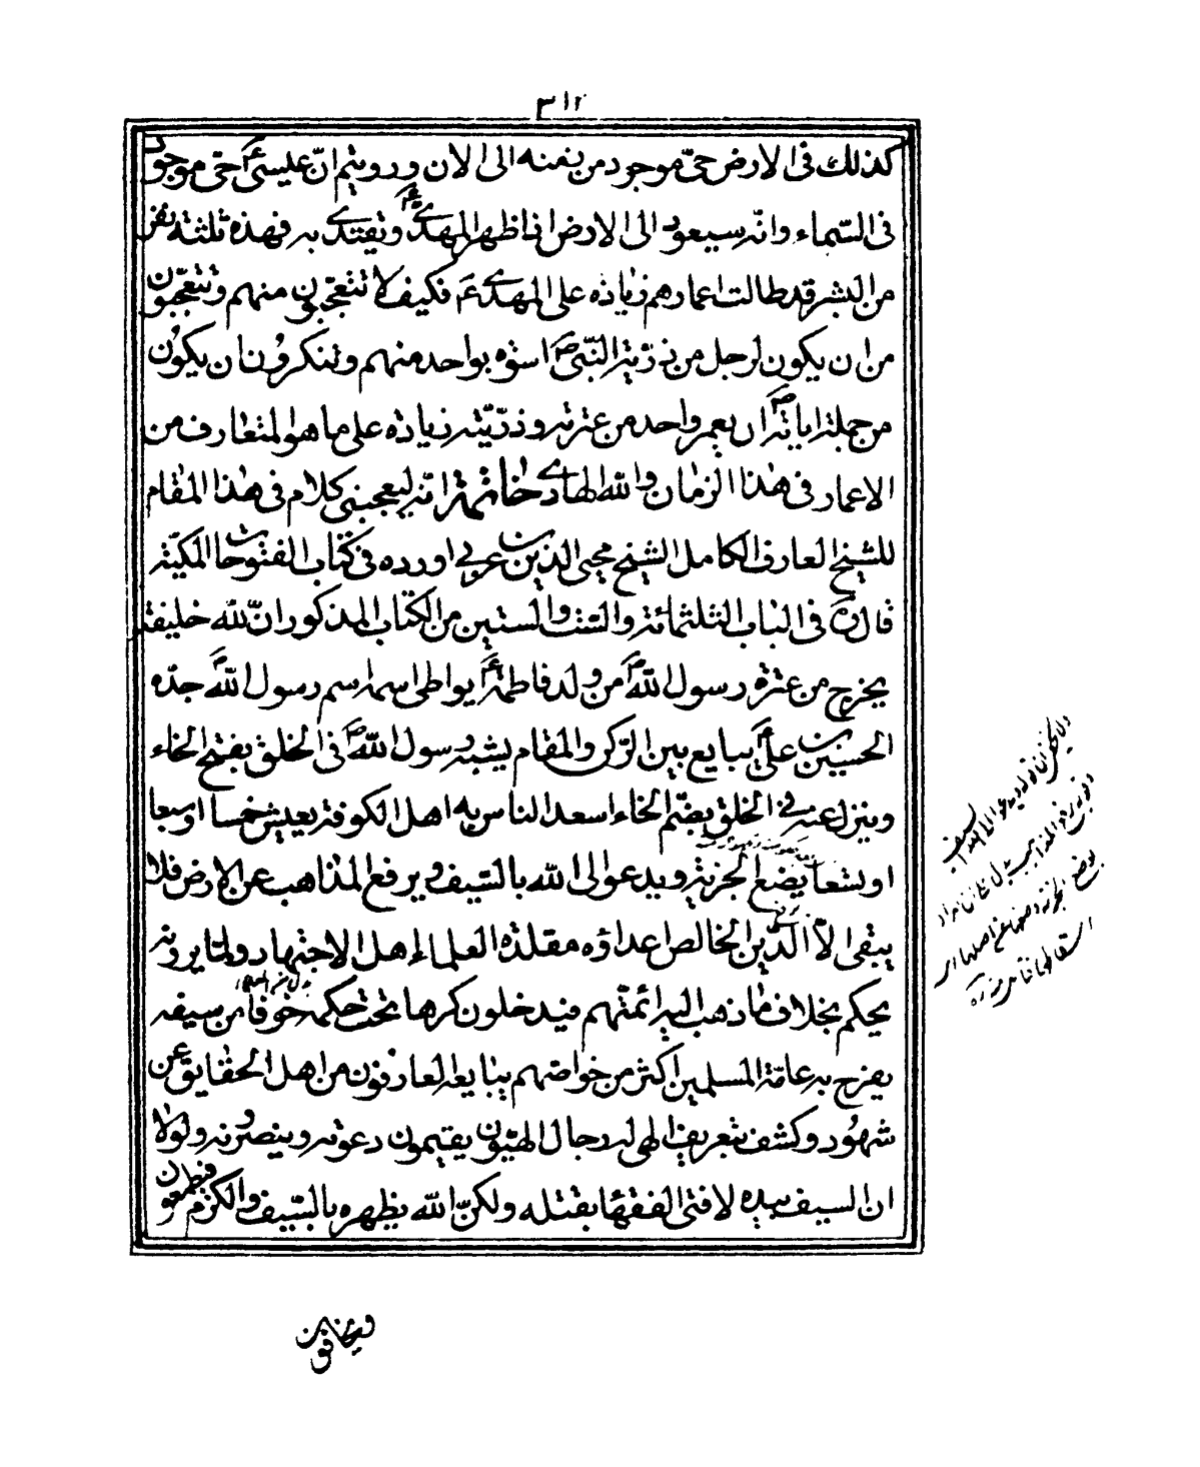 ٣١٢
كذلك فی الارض حیّ موجود من زمنه الی الان ورويتم انّ عيسیٰ ع حیّ موجود
فی السّماء وانّه سيعود الی الارض اذا ظهر المهدی ع وتقتدی به فهذه ثلثة نفر
من البشر قد طالت اعمارهم زيادة علی المهدی ع فكيف لا تتعجّبون منهم وتتعجّبون
من ان يكون لرجل من ذرّية النّبی ص اسوة بواحد منهم وتنكرون ان يكون
من جملة اياته ص ان يعمر واحد من عترته وذرّيّته زيادة علی ما هو المتعارف من
الاعمار فی هذا الزمان والله الهادی خاتمة انّه ليعجبنی كلام فی هذا المقام
للشيخ العارف الكامل الشيخ محيی الدّين بن عربی اورده فی كتاب الفتوحات المكيّة
قال ره فی الباب الثلثمائة والستّ والستين من الكتاب المذكور انّ لله خليفة
يخرج من عترة رسول الله ص من ولد فاطمة ع يواطی اسمه اسم رسول الله ص جدّه
الحسين بن علی ع يبايع بين الرّكن والمقام يشبه رسول الله ص فی الخلق بفتح الخاء
وينزل عنه فی الخلق بضمّ الخاء اسعد الناس به اهل الكوفة يعيش خمسا او سبعا
او تسعا يضع الجزية ويدعو الی الله بالسّيف ويرفع المذاهب عن الارض فلا
يبقی الّا الدّين الخالص اعداؤه مقلدة العلماء اهل الاجتهاد ولما يرونه
يحكم بخلاف ما ذهب اليه ائمتّهم فيدخلون كرها تحت حكمه خوفا من سيفه
يفرح به عامّة المسلمين اكثر من خواصّهم يبايعه العارفون من اهل الحقايق عن
شهُود وكشف بتعريف الهی له رجال الهيّون يقيمون دعوته وينصرونه ولولا
ان السيف بيده لافتی الفقهاء بقتله ولكنّ الله يظهره بالسّيف والكرم فيطمعون
ويخافون